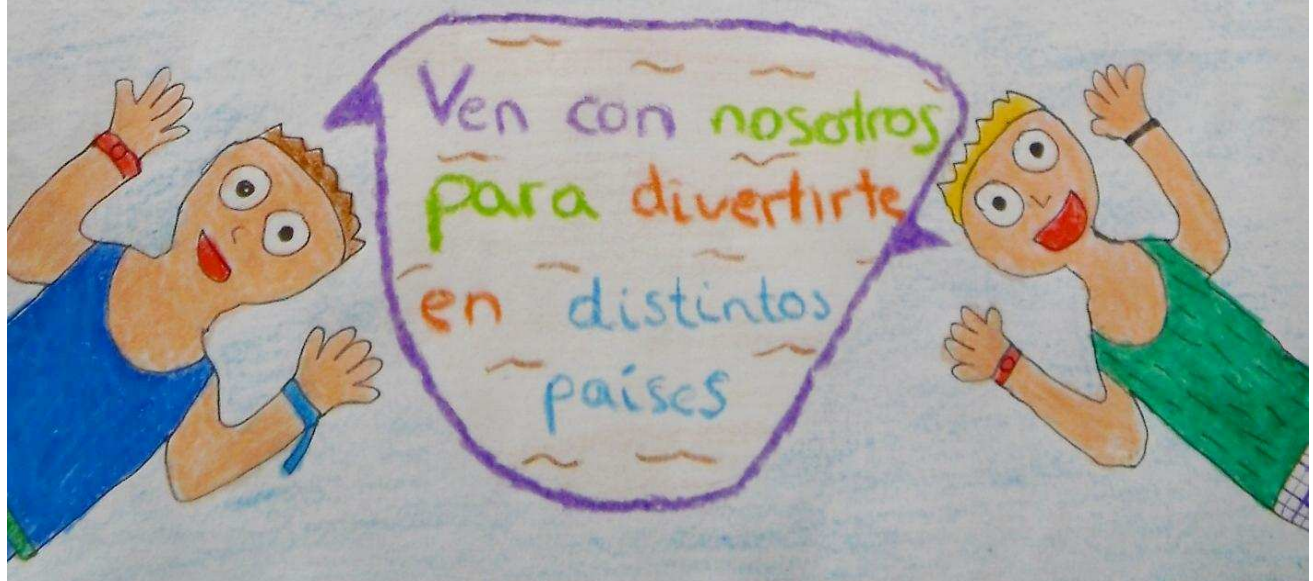 Ven con nosotros
para divertirte
en distintos
países